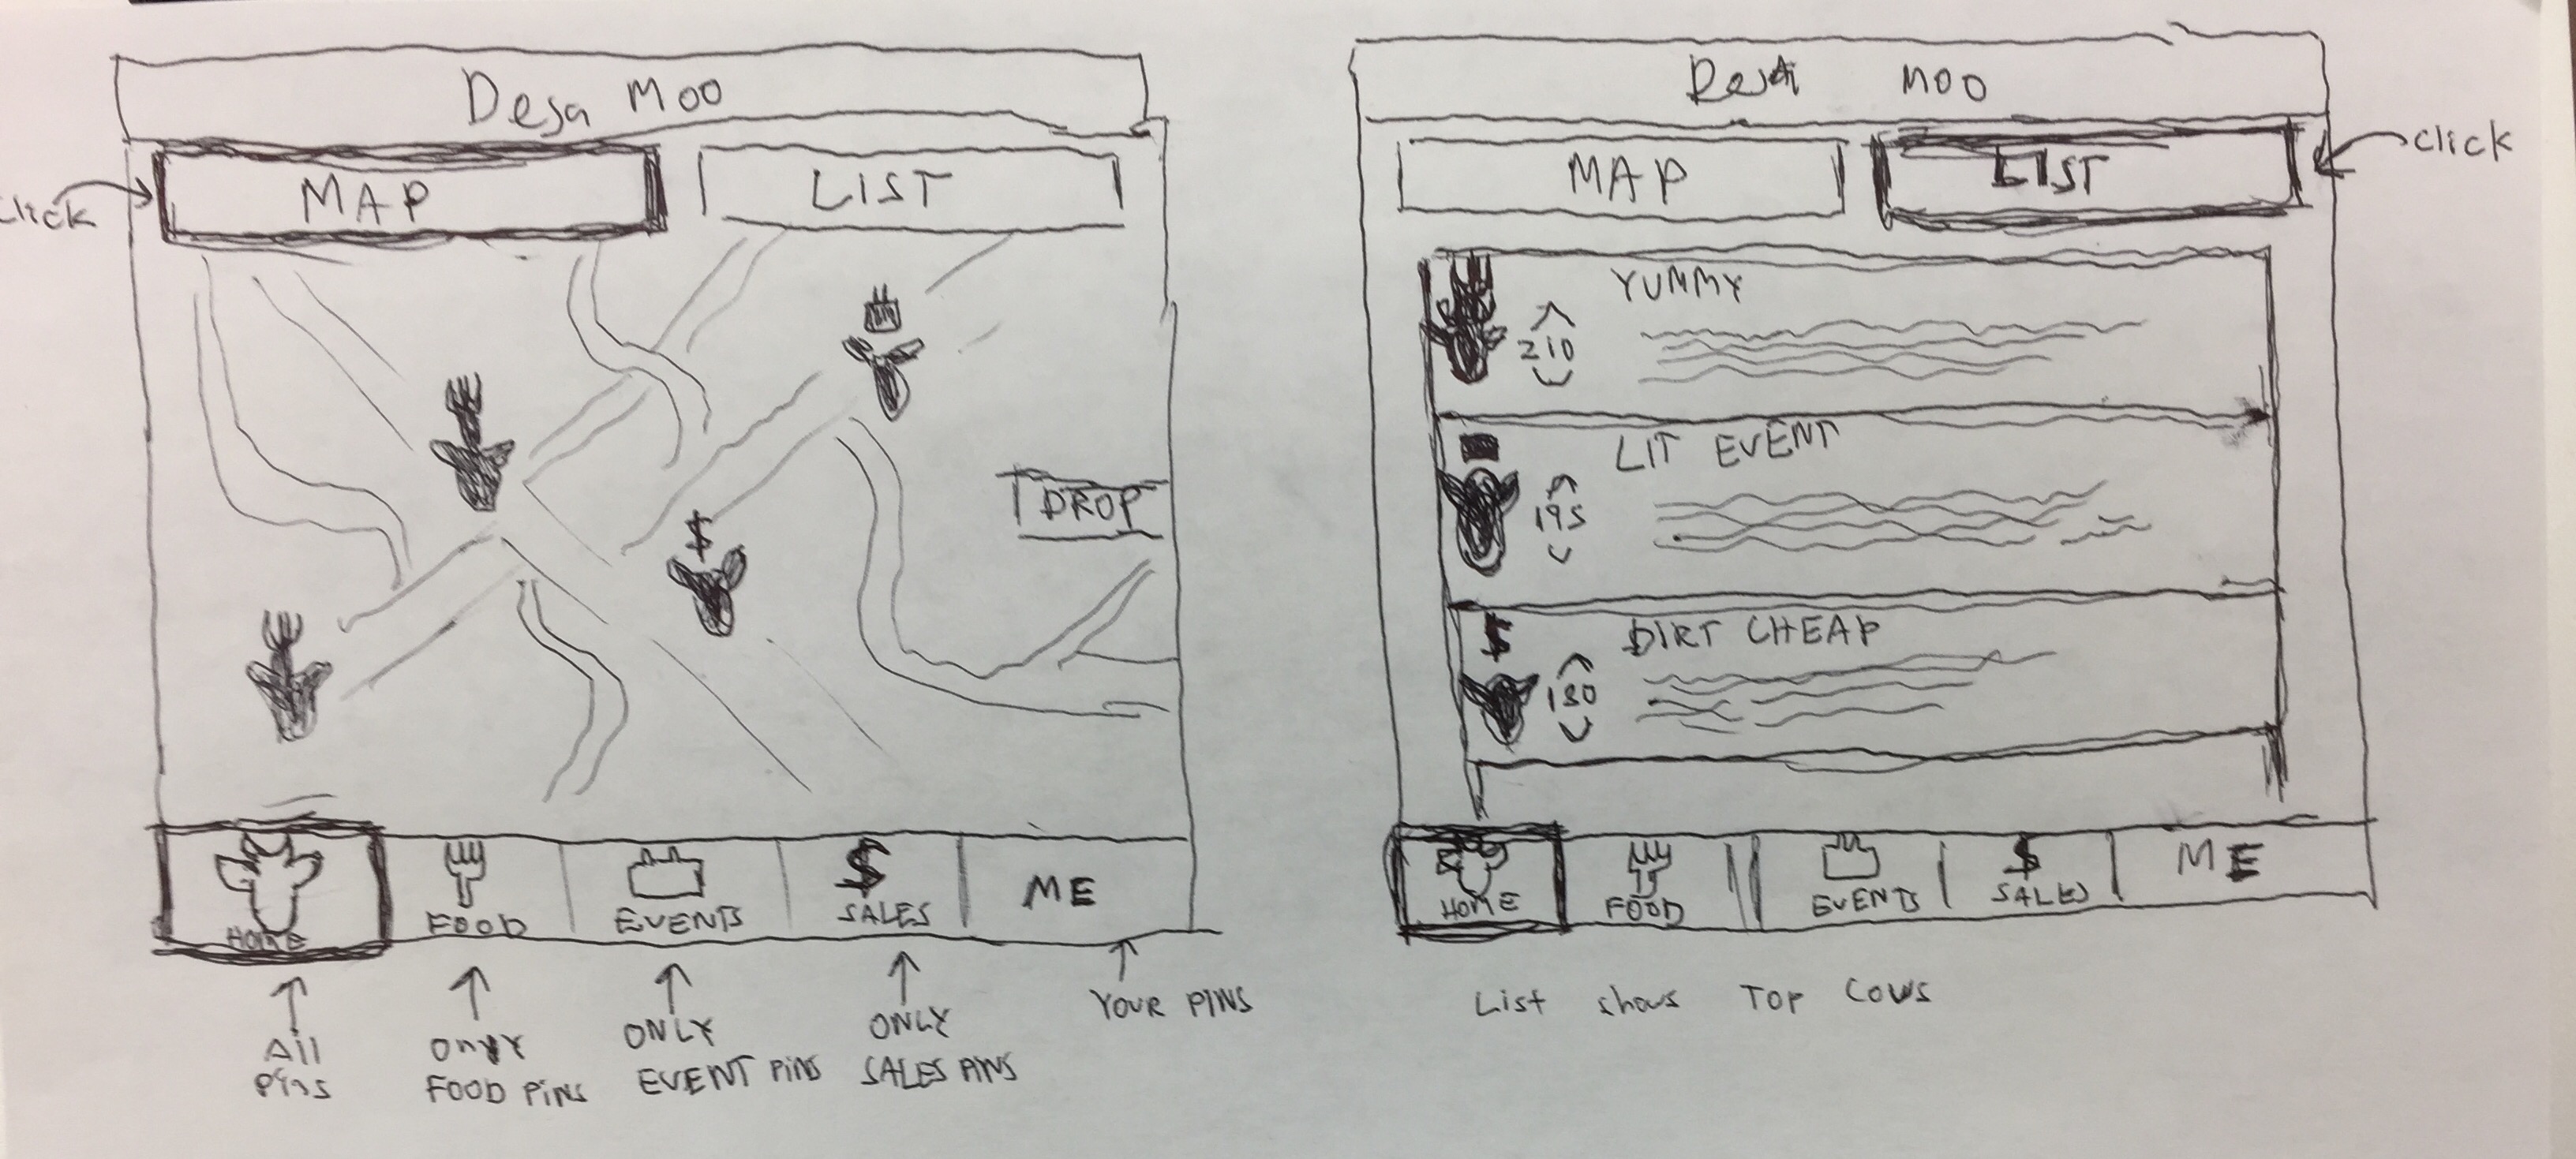 Desa Moo
click
MAP
LIST
$
DROP
HOME
FOOD
EVENTS
$
SALES
ME
All
Pins
Only
FOOD PiNS
ONLY
EVENT PiNS
ONLY
SALES PiNS
YOUR PINS
MOO
MAP
LIST
click
YUMMY
210
LIT EVENT
195
$
DIRT CHEAP
180
HOME
FOOD
EVENTS
$
SALES
ME
List shows Top Cows